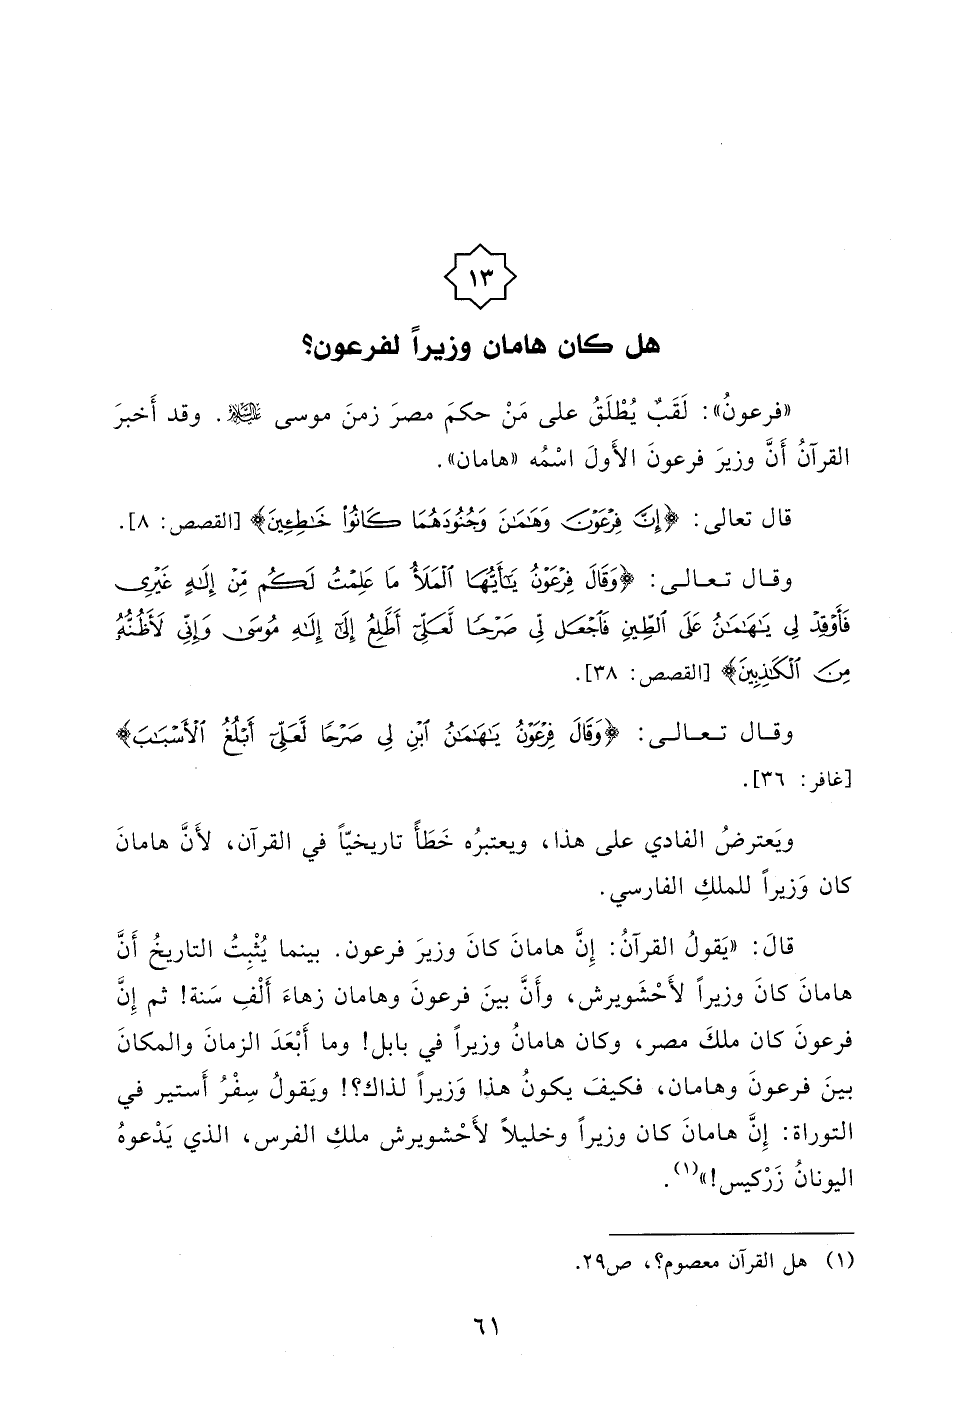 ١٣
هل كان هامان وزيراً لفرعون؟
«فرعونُ»: لَقَبٌ يُطْلَقُ على مَنْ حكمَ مصرَ زمنَ موسى عليه السلام. وقد أَخبرَ
القرآنُ أَنَّ وزيرَ فرعونَ الأَولَ اسْمُه «هامان».
قال تعالى: ﴿إِنَّ فِرْعَوْنَ وَهَٰمَٰنَ وَجُنُودَهُمَا كَانُوا۟ خَٰطِـِٔينَ﴾ [القصص: ٨].
وقـال تـعـالـى: ﴿وَقَالَ فِرْعَوْنُ يَٰٓأَيُّهَا ٱلْمَلَأُ مَا عَلِمْتُ لَكُم مِّنْ إِلَٰهٍ غَيْرِى
فَأَوْقِدْ لِى يَٰهَٰمَٰنُ عَلَى ٱلطِّينِ فَٱجْعَل لِّى صَرْحًا لَّعَلِّىٓ أَطَّلِعُ إِلَىٰٓ إِلَٰهِ مُوسَىٰ وَإِنِّى لَأَظُنُّهُۥ
مِنَ ٱلْكَٰذِبِينَ﴾ [القصص: ٣٨].
وقـال تـعـالـى: ﴿وَقَالَ فِرْعَوْنُ يَٰهَٰمَٰنُ ٱبْنِ لِى صَرْحًا لَّعَلِّىٓ أَبْلُغُ ٱلْأَسْبَٰبَ﴾
[غافر: ٣٦].
ويَعترضُ الفادي على هذا، ويعتبرُه خَطَأً تاريخيّاً في القرآن، لأَنَّ هامانَ
كان وَزيراً للملكِ الفارسي.
قالَ: «يَقولُ القرآنُ: إِنَّ هامانَ كانَ وزيرَ فرعون. بينما يُثْبِتُ التاريخُ أَنَّ
هامانَ كانَ وزيراً لأَحْشويرش، وأَنَّ بينَ فرعونَ وهامان زهاءَ أَلْفِ سَنة! ثم إِنَّ
فرعونَ كان ملكَ مصر، وكان هامانُ وزيراً في بابل! وما أَبْعَدَ الزمانَ والمكانَ
بينَ فرعونَ وهامان، فكيفَ يكونُ هذا وَزيراً لذاك؟! ويَقولُ سِفْرُ أَستير في
التوراة: إِنَّ هامانَ كان وزيراً وخليلاً لأَحْشويرش ملكِ الفرس، الذي يَدْعوهُ
اليونانُ زَرْكيس!»(١).
(١) هل القرآن معصوم؟، ص٢٩.
٦١